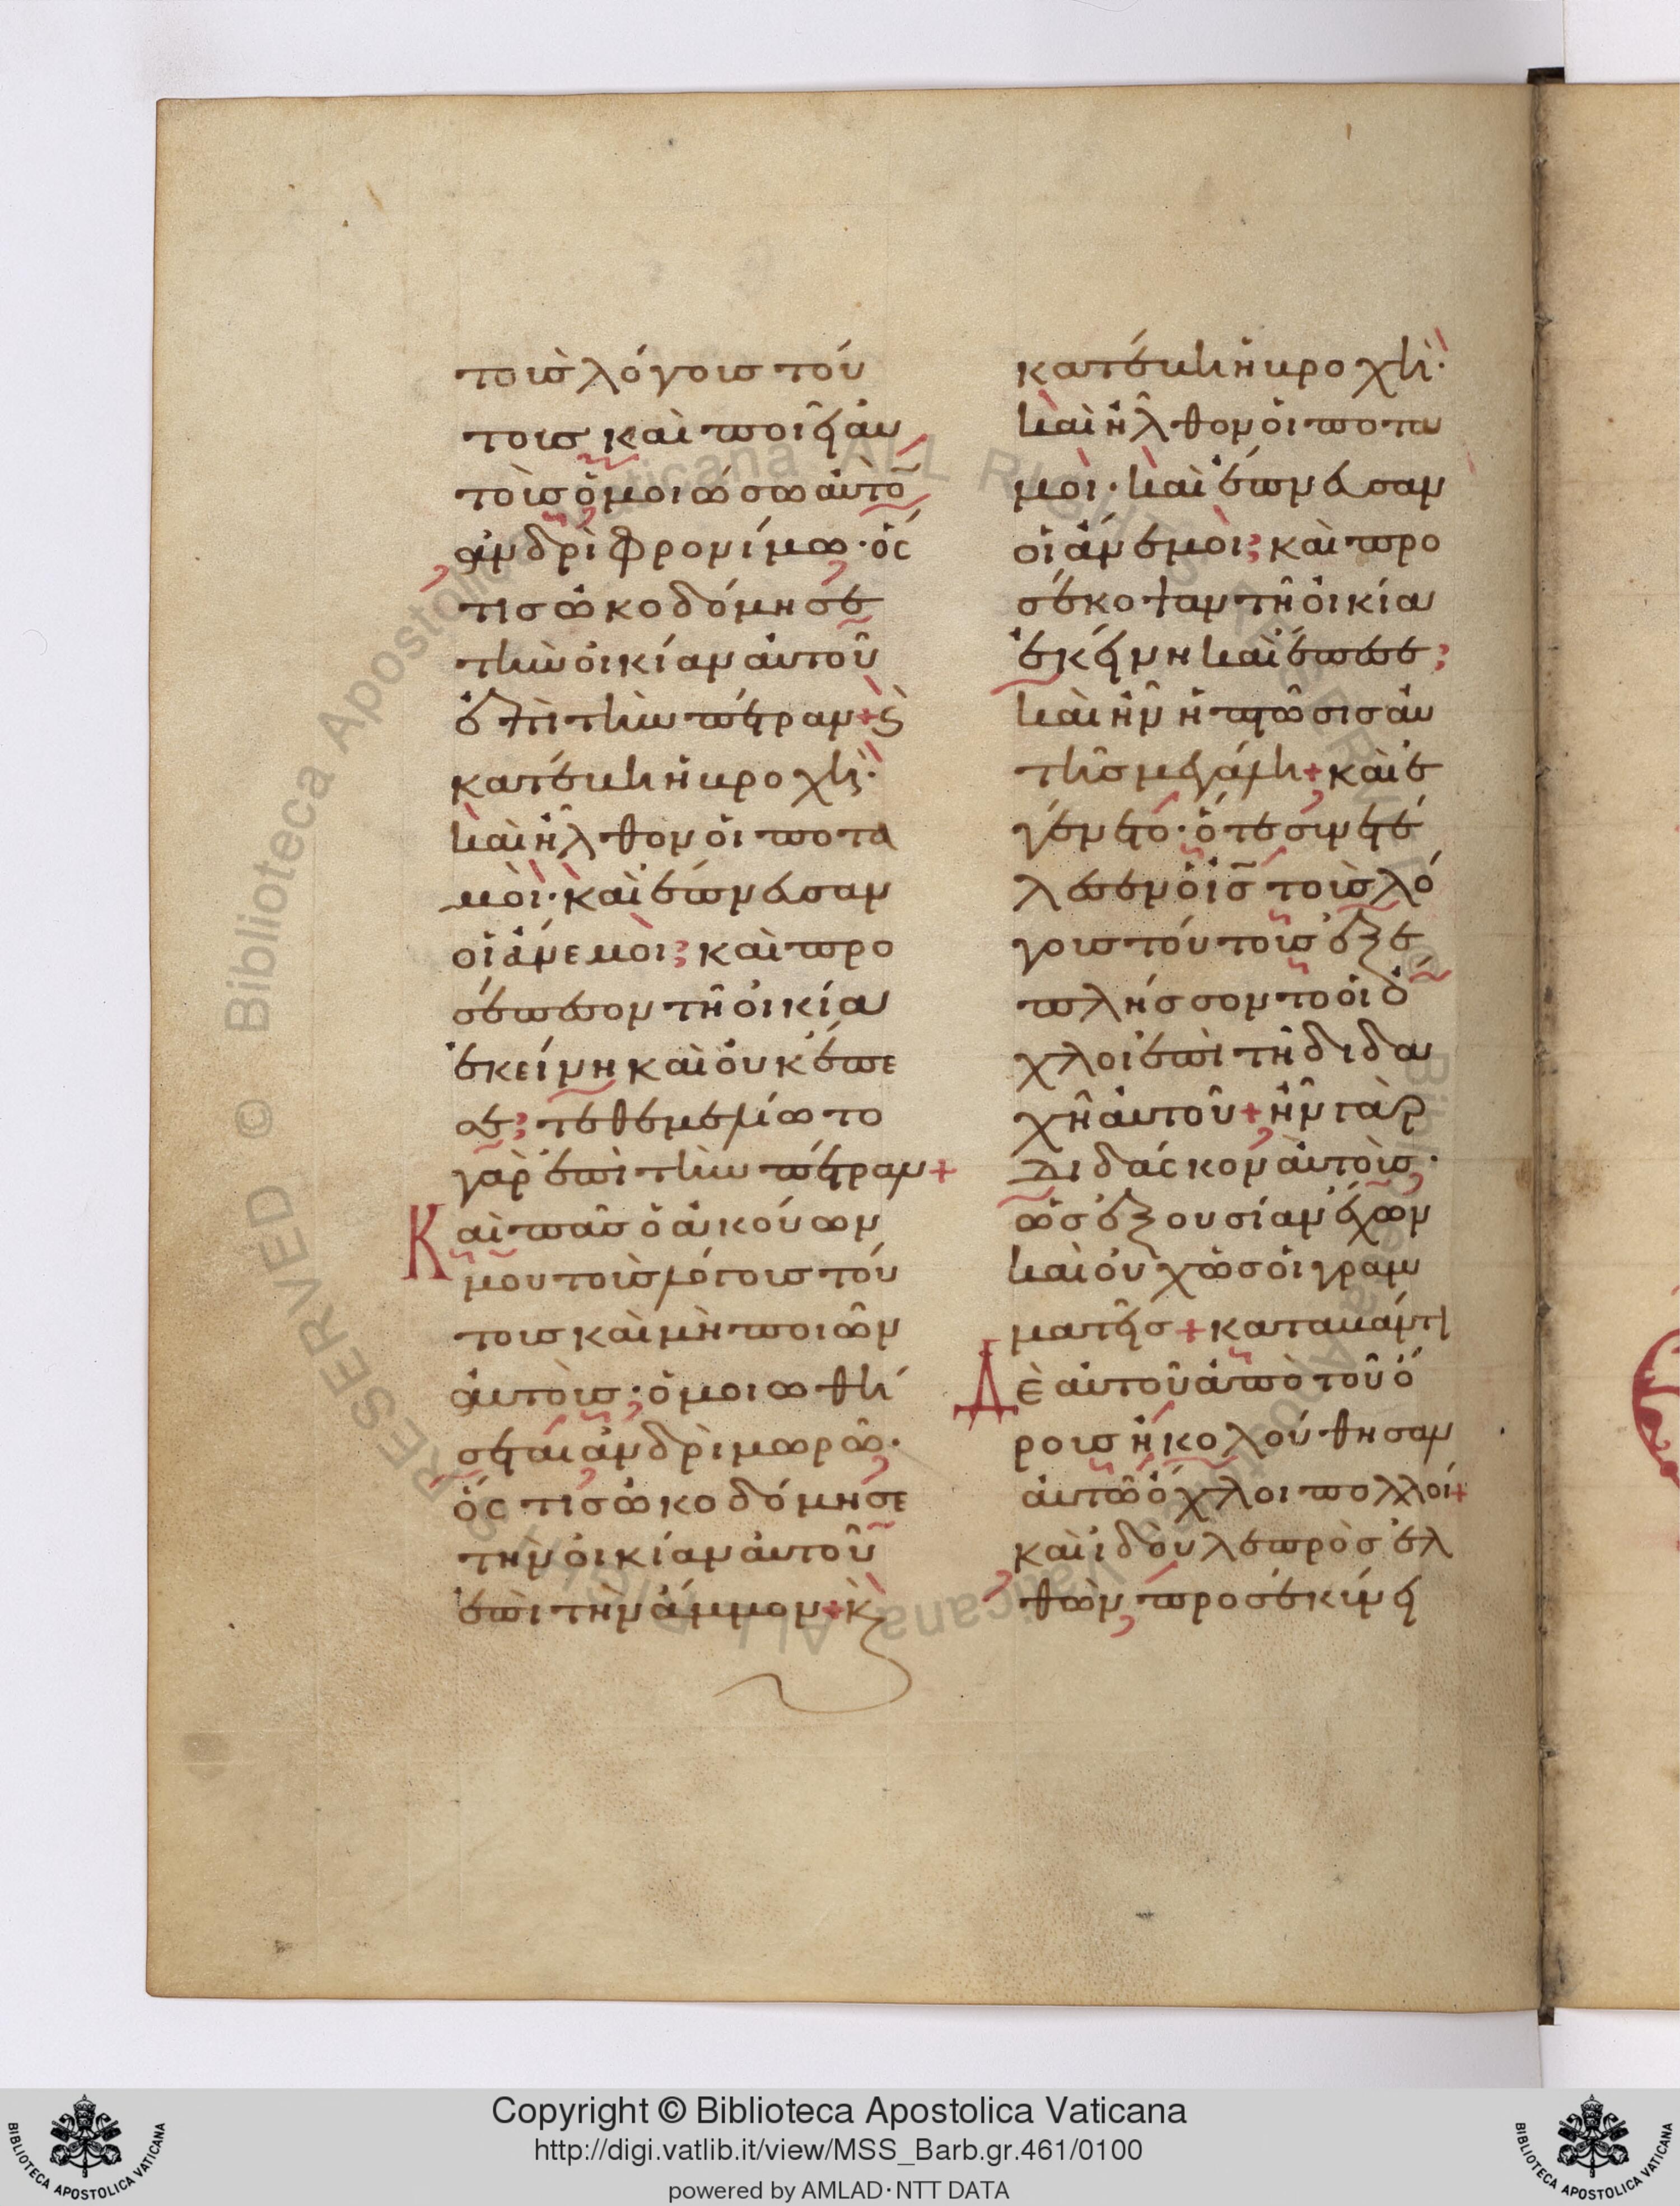 τοῖσ λόγοισ τού
τοισ καὶ ποιεῖ αὐ
τοὺσ ὁμοιώσω αὐτὸ̄
ἀνδρὶ φρονίμω· ὅς
τισ ὠκοδόμησε
τὴν οἰκίαν αὐτοῦ
ἐπὶ τὴν πέτραν + ϗ̀
κατέβη ἡ βροχὴ·
καὶ ἦλθον οἱ ποτα
μοὶ· καὶ ἔπνευσαν
οἱ ἄνεμοι; καὶ προ
σέπεσον τῆ οἰκία
ἐκείνη καὶ οὐκ ἔπε
σε; τεθεμελίωτο
γὰρ ἐπὶ τὴν πέτραν +
Καὶ πᾶσ ὁ ἀκούων
μου τοὺσ λόγοισ τού
τοισ καὶ μὴ ποιῶν
αὐτοὺσ; ὁμοιωθή
σεται ἀνδρὶ μωρῶ·
ὅς τισ ὠκοδόμησε
τὴν οἰκίαν αὐτοῦ
ἐπὶ τὴν ἄμμον + ϗ̀
κατέβη ἡ βροχὴ·
καὶ ἦλθον οἱ ποτα
μοὶ· καὶ ἔπνευσαν
οἱ ἄνεμοὶ; καὶ προ
σέκοψαν τῆ οἰκία
ἐκείνη καὶ ἔπεσε;
καὶ ἦν ἡ πτῶσισ αὐ
τῆσ μεγάλη + καὶ ἐ
γένετο· ὅτε συνετέ
λεσεν ὁ ἰ̅σ̅ τοὺσ λό
γουσ τούτουσ ἐξε
πλήσσοντο οἱ ὄ
χλοι ἐπὶ τῆ διδα
χῆ αὐτοῦ + ἦν γὰρ
διδάσκον αὐτοὺσ·
ὡσ ἐξουσίαν ἔχων
καὶ οὐχ ὡσ οἱ γραμ
ματεῖσ + καταβάντι
Δὲ αὐτοῦ ἀπὸ τοῦ ὄ
ρουσ ἠκολούθησαν
αὐτῶ ὄχλοι πολλοί +
καὶ ἰδοὺ λεπρὸσ ἐλ
θὼν προσεκύνει
Copyright © Biblioteca Apostolica Vaticana
http://digi.vatlib.it/view/MSS_Barb.gr.461/0100
powered by AMLAD·NTT DATA